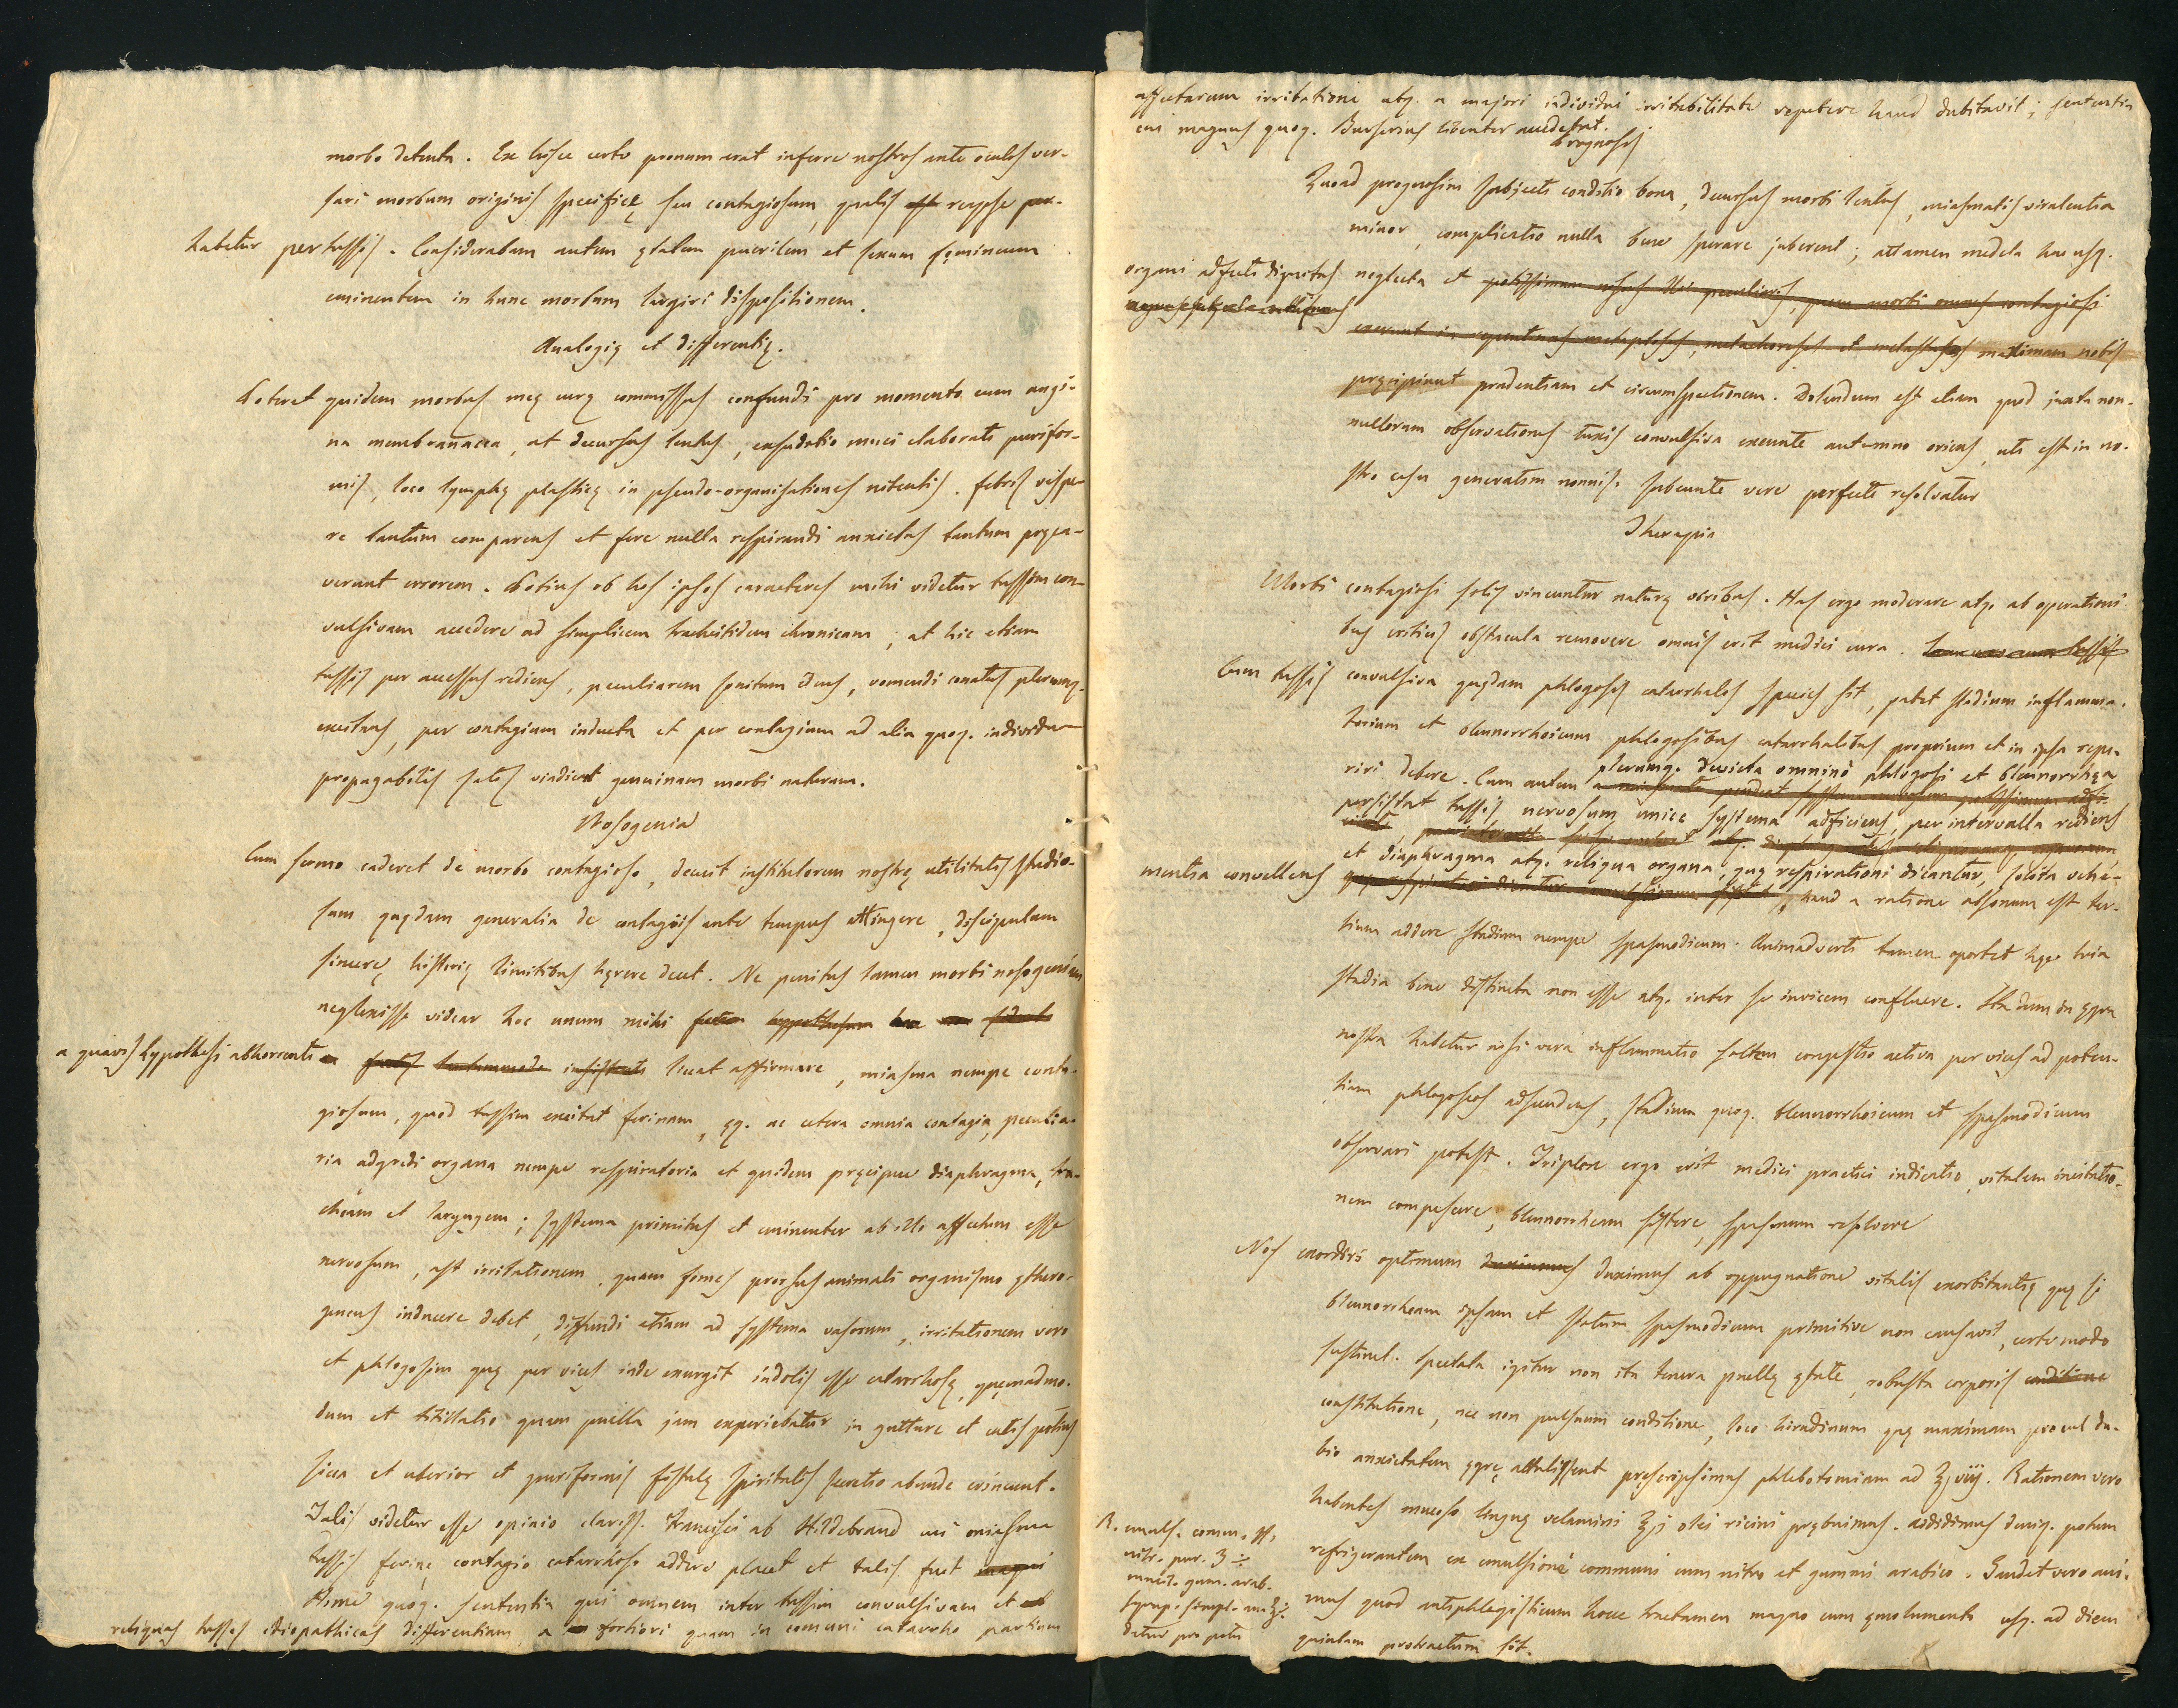 morbo detenta. Ex hisce certo pronum erat inferre nostros ante oculos ver-
sari morbum originis specificę seu contagiosum, qualis est reapse per-
habetur pertussis. Considerabam autem ętatem puerilem et sexum fęmineum
eminentem in hunc morbum largiri dispositionem.
Analogię et differentię.
Poteret quidem morbus meę curę commissus confundi pro momento cum angi-
na membranacea, at decursus lentus, exsudatio muci elaborati purifor-
mis, loco lymphę plasticę in pseudo-organisationes nitentis, febris vespe-
re tantum comparens et fere nulla respirandi anxietas tantum pręca-
verant errorem. Potius ob hos ipsos caracteres mihi videtur tussim con-
vulsivam accedere ad simplicem tracheitidem chronicam; at hic etiam
tussis per accessus rediens, peculiarem sonitum edens, vomendi conatus plerumq.
excitans, per contagium inducta et per contagium ad alia quoq. individua
propagabilis satis vindicat genuinam morbi naturam.
Nosogenia
Cum sermo caderet de morbo contagioso, decuit institutorem nostrę utilitatis studio-
sum quędam generalia de contagiis ante tempus attingere, discipulum
sincerę historię limitibus hęrere decet. Ne penitus tamen morbi nosogeniam
neglexisse videar hoc unum mihi
a quavis hypothesi abhorrenti insistenti liceat affirmare, miasma nempe conta-
giosum, quod tussim excitat ferinam, ęq. ac cetera omnia contagia, peculia-
ria adgredi organa nempe respiratoria et quidem pręcipue diaphragma, tra-
cheam et laryngem; systema primitus et eminenter ab illo affectum esse
nervosum, ast irritationem, quam fomes prorsus animali organismo ęthero-
geneus inducere debet, diffundi etiam ad systema vasorum, irritationem vero
et phlogosim quę per vices inde exurgit indolis esse catarrhosę, quęmadmo-
dum et titillatio quam puella jam experiebatur in gutture et cutis potius
sicca et uberior et puriformis fistulę spiritalis secretio abunde evincunt.
Talis videtur esse opinio clariss. Francisci ab Hildebrand cui miasma
tussis ferinę contagio catarrhoso addere placet et talis fuit magni
Hime quoq. sententia qui omnem inter tussim convulsivam et
reliquas tusses idiopathicas differentiam, a fortiori quam in comuni catarrho partium
affectarum irritatione atq. a majori individui irritabilitate repetere haud dubitavit; sententia
cui magnus quoq. Burserius libenter accedebat.
Prognosis
Quoad prognosim subjecti conditio bona, decursus morbi lentus, miasmatis virulentia
minor, complicatio nulla bene sperare juberent; attamen medela huc usq.
organi adfecti dignitas neglecta et potissimum nisus illi peculiares, quem morbi omnes contagiosi
exerunt in repentinas metaptoses, metachoreses et metastases maximam nobis
pręcipiunt prudentiam et circumspectionem. Dolendum est etiam quod juxta non-
nullorum observationes tuxis convulsiva exeunte autumno oriens, uti est in no-
stro casu generatim nonnisi subeunte vere perfecte resolvatur
Therapia
Morbi contagiosi solis vincuntur naturę viribus. Has ergo moderare atq. ab operationi-
bus criticis obstacula removere omnis erit medici cura.
Cum tussis convulsiva quędam phlogoseos catarrhalis species sit, patet stadium inflamma-
torium et blennorrhoicum phlogosibus catarrhalibus proprium et in ipsa repe-
riri debere. Cum autem plerumq. devicta omnino phlogosi et blennorrhęa
persistat tussis nervosum unice systema adficiens, per intervalla rediens
et diaphragma atq. reliqua organa, quę respirationi dicantur, solita vehe-
mentia convellens, haud a ratione absonum est ter-
tium addere stadium nempe spasmodicum. Animadverti tamen oportet hęc tria
stadia bene distincta non esse atq. inter se invicem confluere. Ita dum in ęgra
nostra habetur nisi vera inflammatio saltem congestio activa per vices ad poten-
tiam phlogoseos adscendens, stadium quoq. blennorrhoicum et spasmodicum
observari potest. Triplex ergo erit medici practici indicatio, vitalem incitatio-
nem compescere, blennorrheam sistere, spasmum resolvere
Nos exordiri optimum duximus duximus ab oppugnatione vitalis exorbitantię quę si
blennorrheam ipsam et statum spasmodicum primitive non causavit, certe modo
sustinet. Spectata igitur non ita tenera puellę ętate, robusta corporis conditione
constitutione, nec non pulsuum conditione, loco hirudinum quę maximam procul du-
bio anxietatem ęgrę attulissent prescripsimus phlebotomiam ad ℥viij. Rationem vero
habentes mucoso linguę velamini ℥j olei ricini prębuimus. Addidimus deniq. potum
refrigerantem ex emulsione communi cum nitro et gummi arabico. Gaudet vero ani-
mus quod antiphlogisticum hocce tractamen magno cum ęmolumento usq. ad diem
quintam protractum sit.
R. emuls. comm. ℔j
nitr. pur. ʒ
mucil. gum. arab.
syrup. simpl. an ℥j
detur pro potu